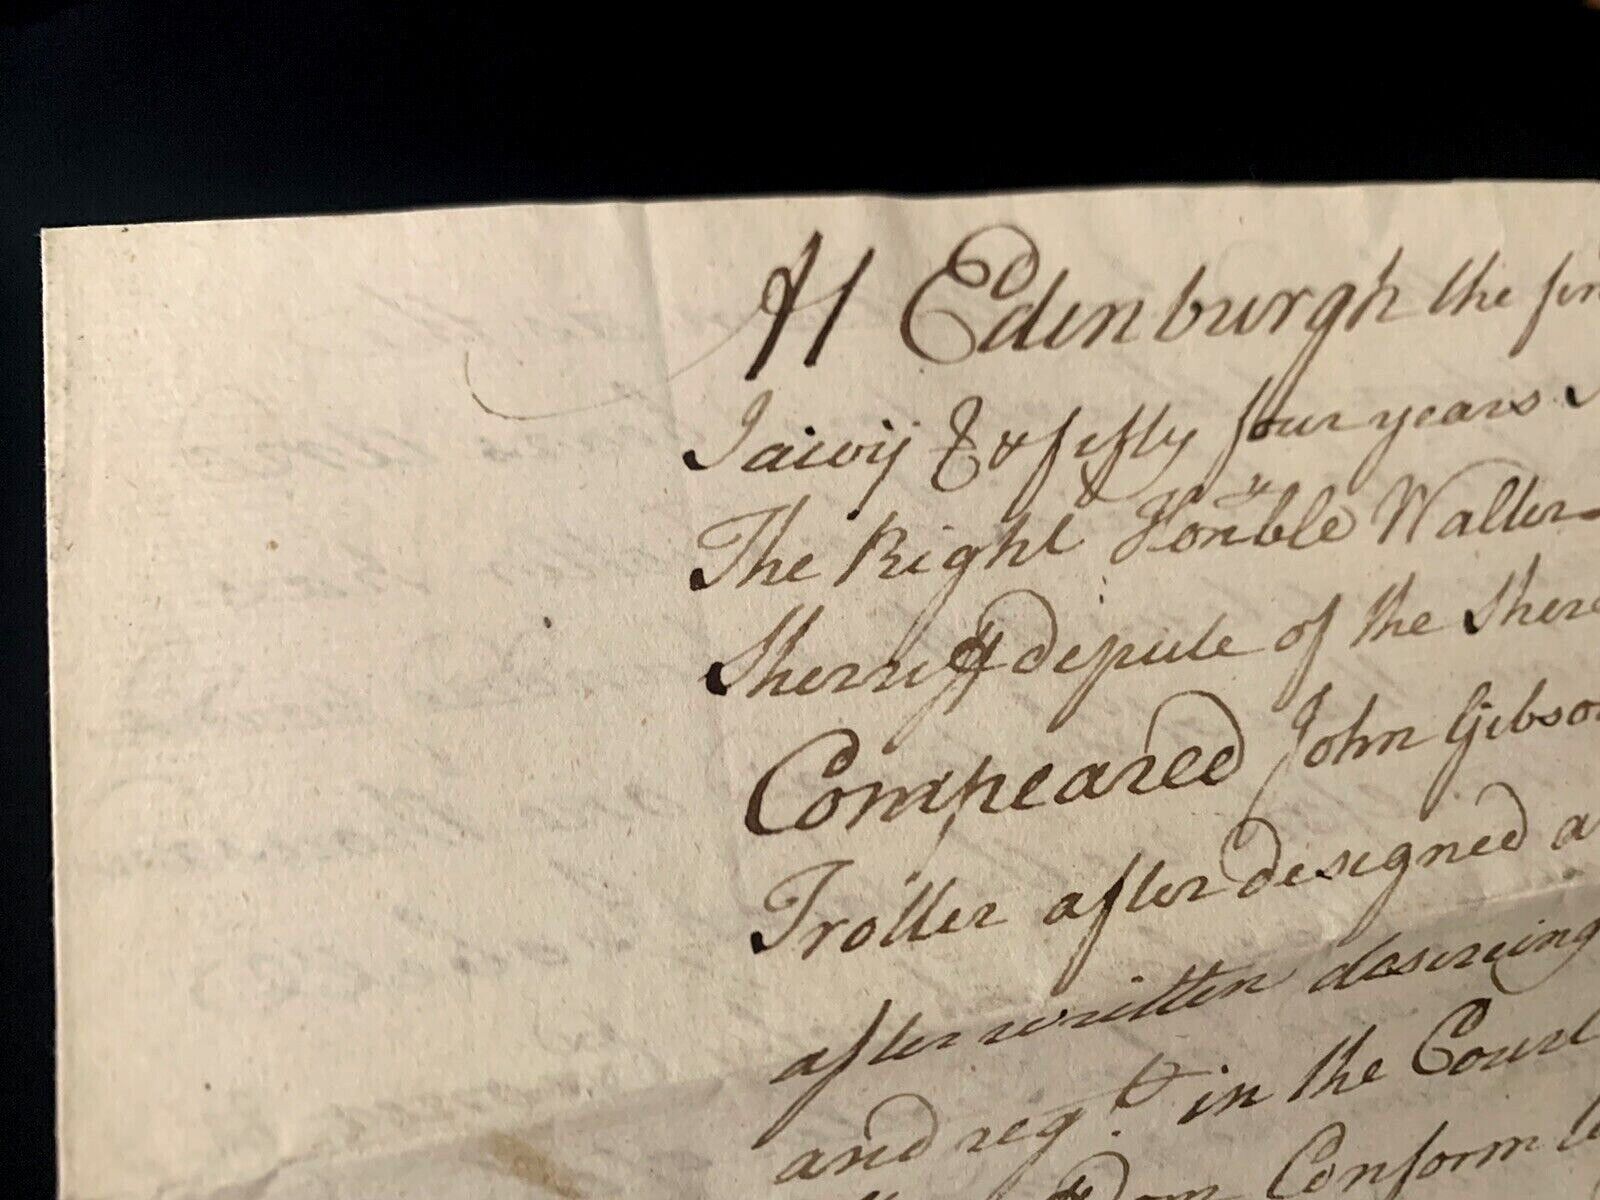 At Edinburgh the
Jaivij & & fifty four years
The Right Honble Walter
Sherriff depute of the
Compeared John Gibson
Trotter after designed
after written desireing
and regt. in the Court
Conform